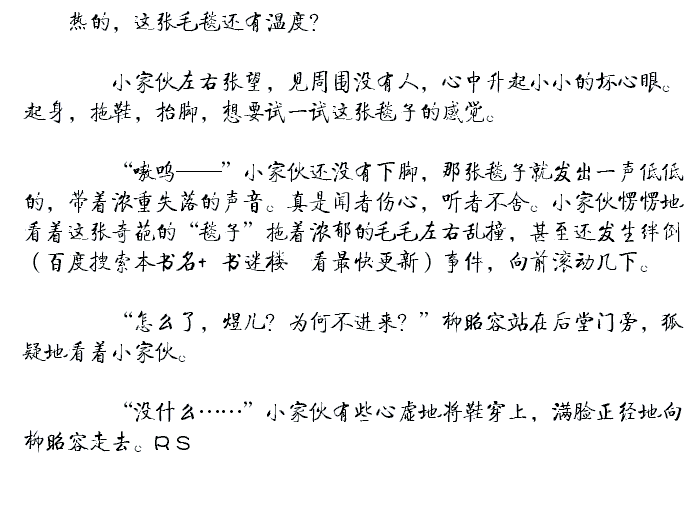 热的，这张毛毯还有温度？
小家伙左右张望，见周围没有人，心中升起小小的坏心眼。
起身，拖鞋，抬脚，想要试一试这张毯子的感觉。
“嗷呜——”小家伙还没有下脚，那张毯子就发出一声低低
的，带着浓重失落的声音。真是闻者伤心，听者不舍。小家伙愣愣地
看着这张奇葩的“毯子”拖着浓郁的毛毛左右乱撞，甚至还发生绊倒
（百度搜索本书名+ 书迷楼 看最快更新）事件，向前滚动几下。
“怎么了，煜儿？为何不进来？”柳昭容站在后堂门旁，狐
疑地看着小家伙。
“没什么……”小家伙有些心虚地将鞋穿上，满脸正经地向
柳昭容走去。RS